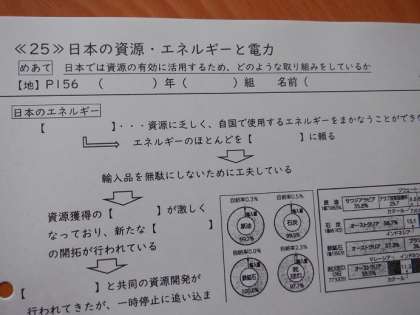 ≪25≫日本の資源・エネルギーと電力
めあて 日本では資源の有効に活用するため、どのような取り組みをしているか
【地】P156 ( )年( )組 名前(
日本のエネルギー
【 】・・・資源に乏しく、自国で使用するエネルギーをまかなうことができ
エネルギーのほとんどを【 】に頼る
輸入品を無駄にしないために工夫している
資源獲得の【 】が激しく
なっており、新たな【 】
の開拓が行われている
【 】と共同の資源開発が
行われてきたが、一時停止に追い込ま
自給率0.3% 自給率0.5%
原油 石炭
99.7% 99.5%
自給率0.0% 自給率2.3%
鉄鉱石
100.0% 97.7%
原油 サウジアラビア
石炭 オーストラリア
鉄鉱石 オーストラリア
オーストラリア